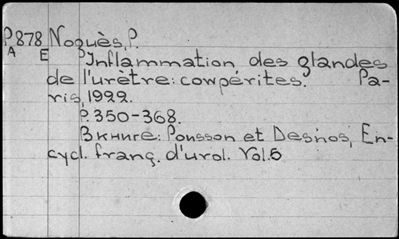 P.878 Noguès, P.
A E Inflammation des glandes
de l'urètre: cowpérites. Pa-
ris, 1922.
P. 350-368.
В книге: Pousson et Desnos, En-
cycl. franç. d'urol. Vol.5